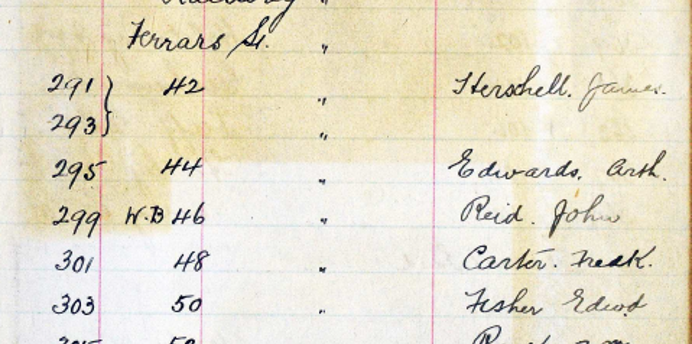 Ferrars St. "
291 } 42 " Herschell. James.
293 "
295 44 " Edwards. Arth.
299 W.B 46 " Reid. John
301 48 " Carter. Fredk.
303 50 " Fisher Edwd